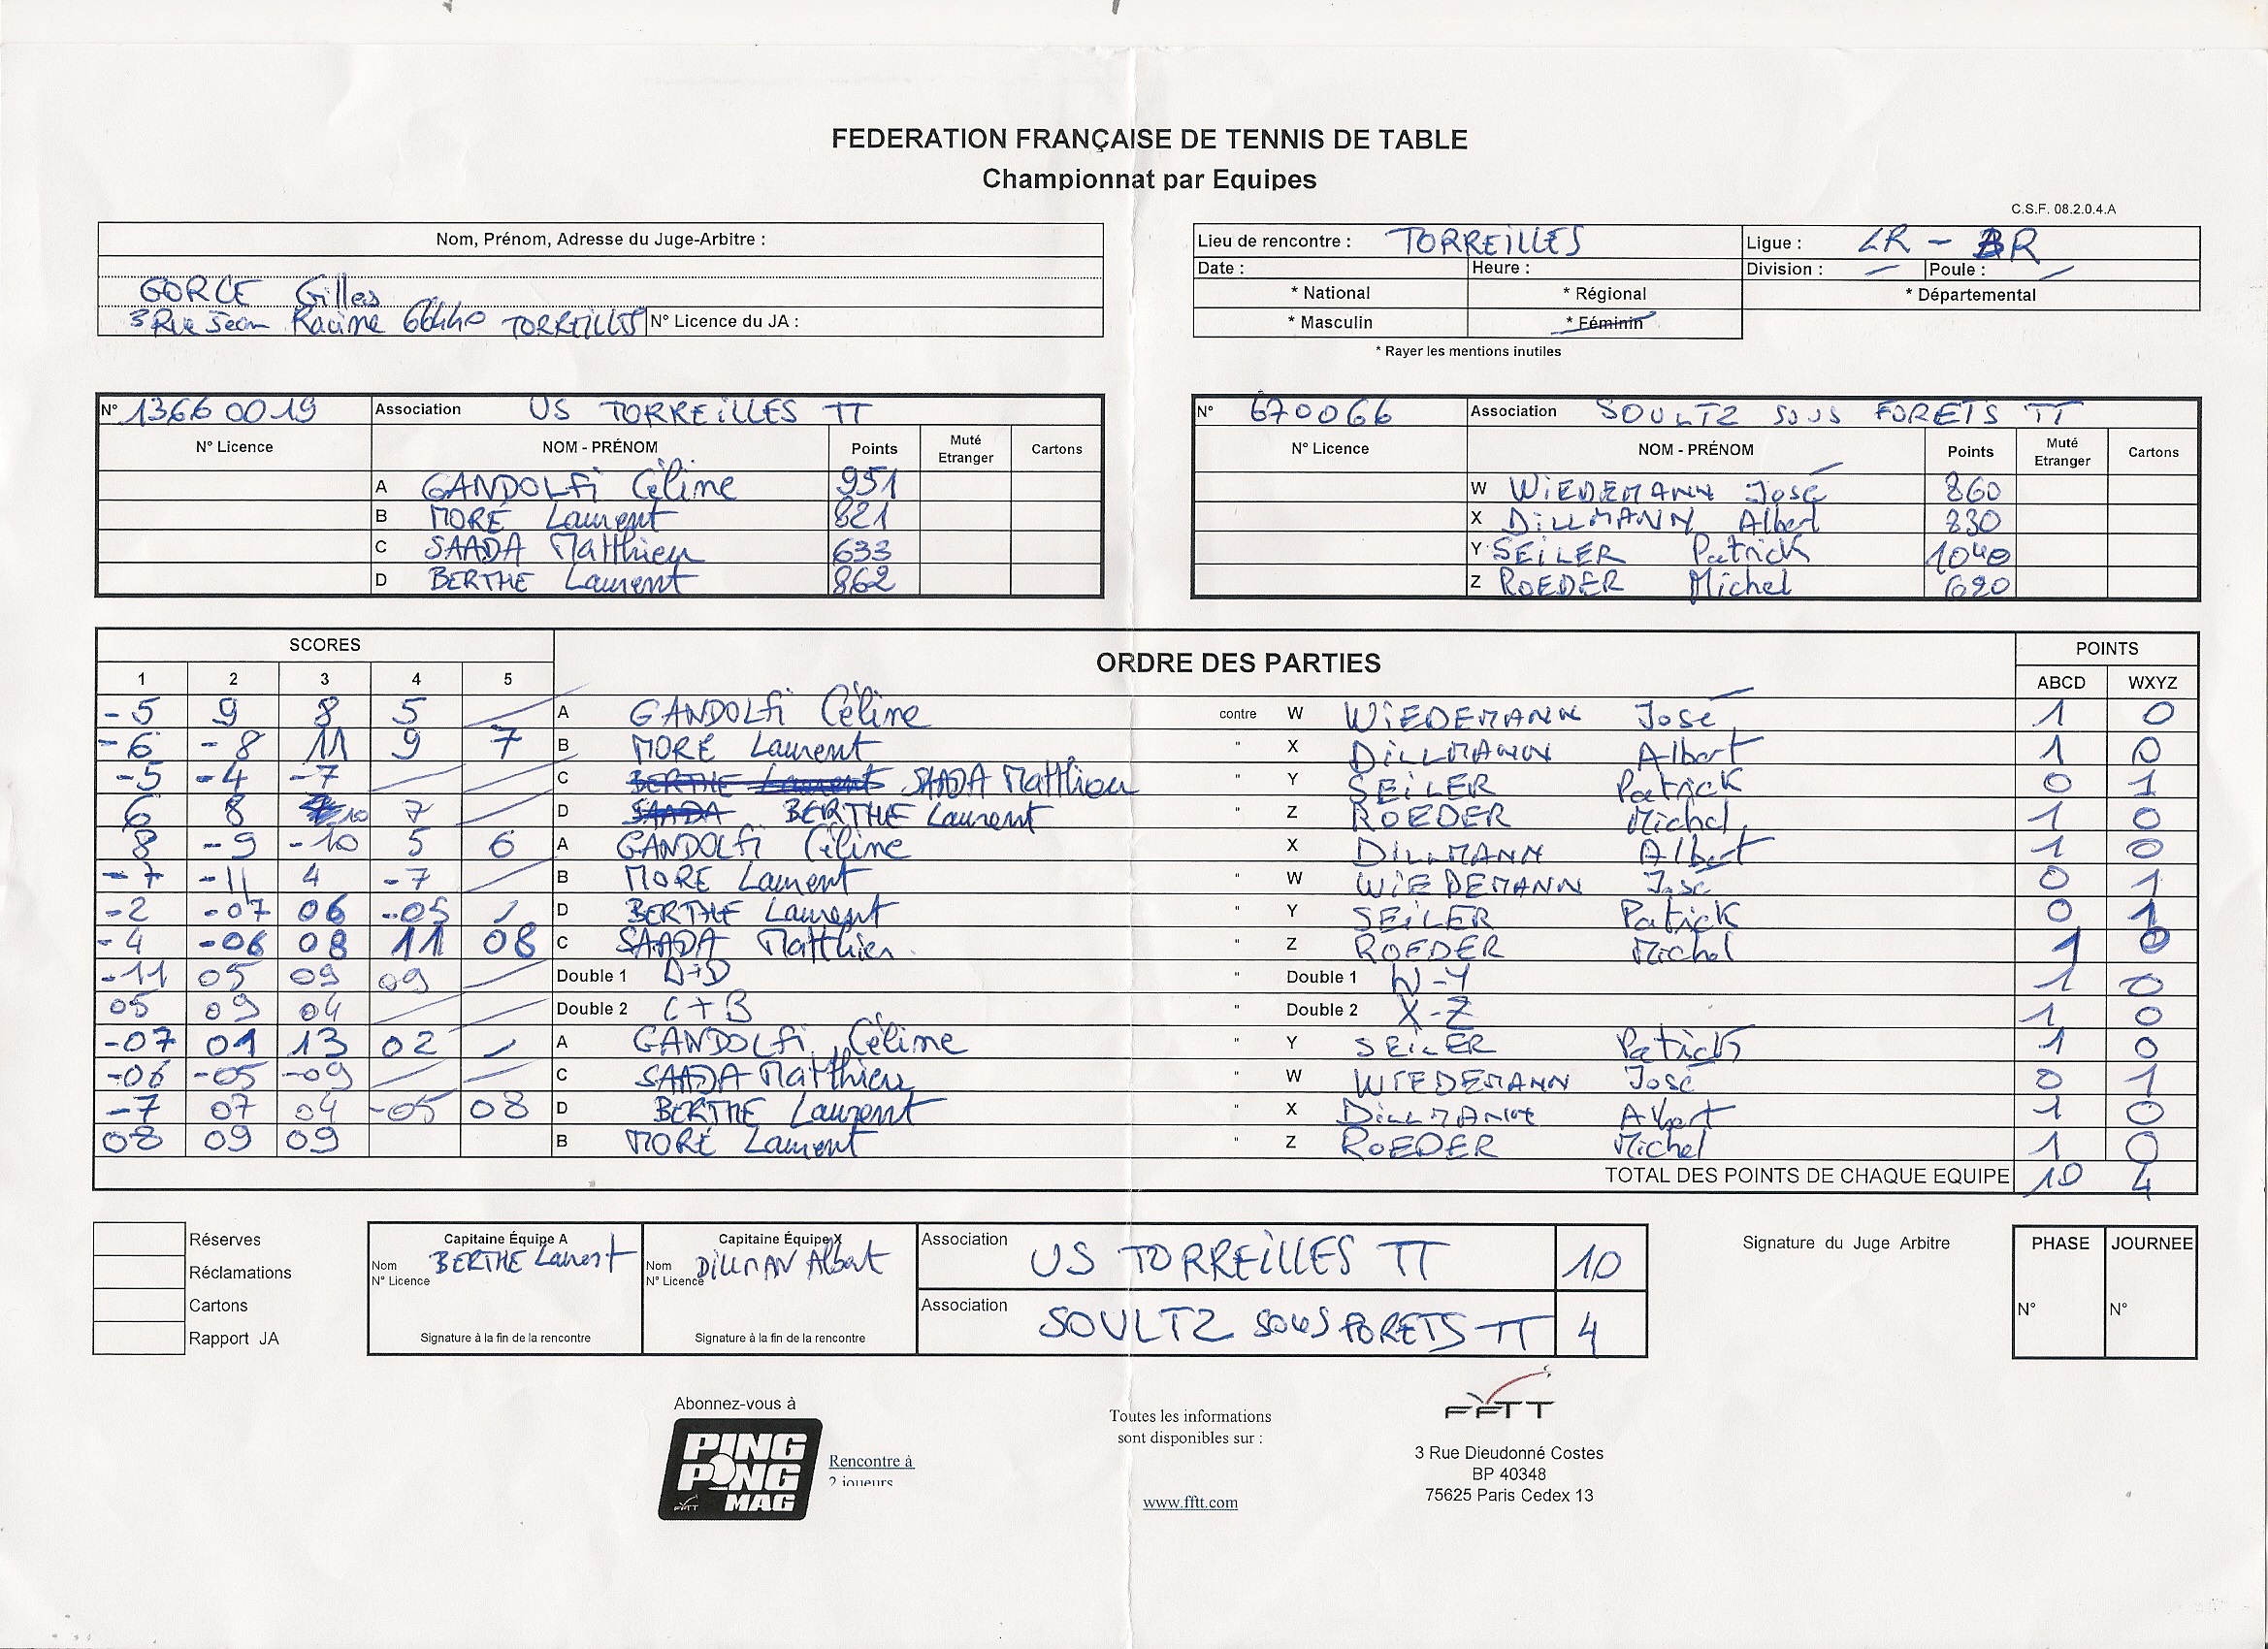 FEDERATION FRANÇAISE DE TENNIS DE TABLE
Championnat par Equipes
C.S.F. 08.2.0.4.A
Nom, Prénom, Adresse du Juge-Arbitre :
GORCE Gilles
3 Rue Jean Racine 66440 TORREILLES N° Licence du JA :
Lieu de rencontre : TORREILLES Ligue : LR - BR
Date : Heure : Division : — Poule : —
* National * Régional * Départemental
* Masculin * Féminin
* Rayer les mentions inutiles
N° 13660019 Association US TORREILLES TT
N° Licence NOM - PRÉNOM Points Muté Etranger Cartons
A GANDOLFi Céline 951
B MORÉ Laurent 821
C SAADA Matthieu 633
D BERTHE Laurent 862
N° 670066 Association SOULTZ SOUS FORETS TT
N° Licence NOM - PRÉNOM Points Muté Etranger Cartons
W WiEDEMANN José 860
X DiLLMANN Albert 830
Y SEiLER Patrick 1040
Z ROEDER Michel 620
SCORES ORDRE DES PARTIES POINTS
1 2 3 4 5 ABCD WXYZ
-5 9 8 5 A GANDOLFi Céline contre W WiEDEMANN José 1 0
-6 -8 11 9 7 B MORÉ Laurent " X DiLLMANN Albert 1 0
-5 -4 -7 C BERTHE Laurent SAADA Matthieu " Y SEiLER Patrick 0 1
6 8 10 7 D SAADA BERTHE Laurent " Z ROEDER Michel 1 0
8 -9 -10 5 6 A GANDOLFi Céline X DiLLMANN Albert 1 0
-7 -11 4 -7 B MORÉ Laurent " W WiEDEMANN José 0 1
-2 -07 06 -05 D BERTHE Laurent " Y SEiLER Patrick 0 1
-4 -06 08 11 08 C SAADA Matthieu " Z ROEDER Michel 1 0
-11 05 09 09 Double 1 A+D " Double 1 W-Y 1 0
05 09 04 Double 2 C+B " Double 2 X-Z 1 0
-07 01 13 02 A GANDOLFi Céline " Y SEiLER Patrick 1 0
-06 -05 -09 C SAADA Matthieu " W WIEDEMANN José 0 1
-7 07 04 -05 08 D BERTHE Laurent " X DiLLMANN Albert 1 0
08 09 09 B MORÉ Laurent " Z ROEDER Michel 1 0
TOTAL DES POINTS DE CHAQUE EQUIPE 10 4
Réserves
Réclamations
Cartons
Rapport JA
Capitaine Équipe A
Nom BERTHE Laurent
N° Licence
Signature à la fin de la rencontre
Capitaine Équipe X
Nom DiLLMAN Albert
N° Licence
Signature à la fin de la rencontre
Association US TORREiLLES TT 10
Association SOULTZ SOUS FORETS TT 4
Signature du Juge Arbitre
PHASE JOURNEE
N° N°
Abonnez-vous à
PING
PONG
MAG
FFTT
Rencontre à
2 joueurs
Toutes les informations
sont disponibles sur :
www.fftt.com
FFTT
3 Rue Dieudonné Costes
BP 40348
75625 Paris Cedex 13